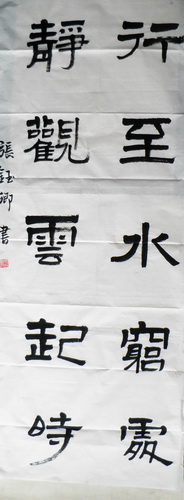 行至水窮處
靜觀雲起時
張鈺卿書